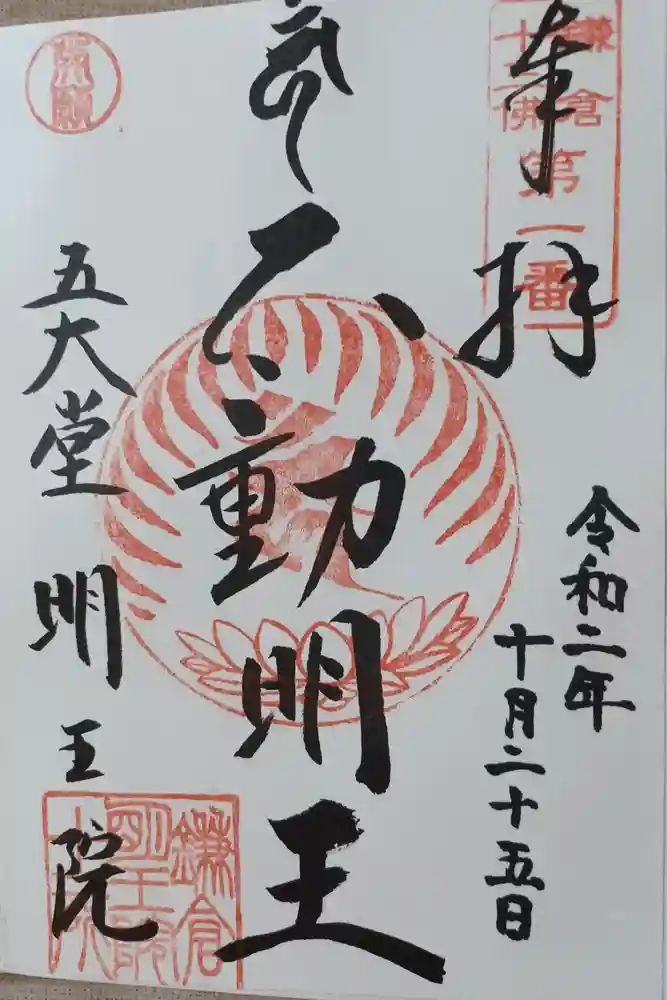 鎌倉
十三佛
第一番
奉拝
令和二年
十月二十五日
不動明王
五大堂 明王院
鎌倉
明王院